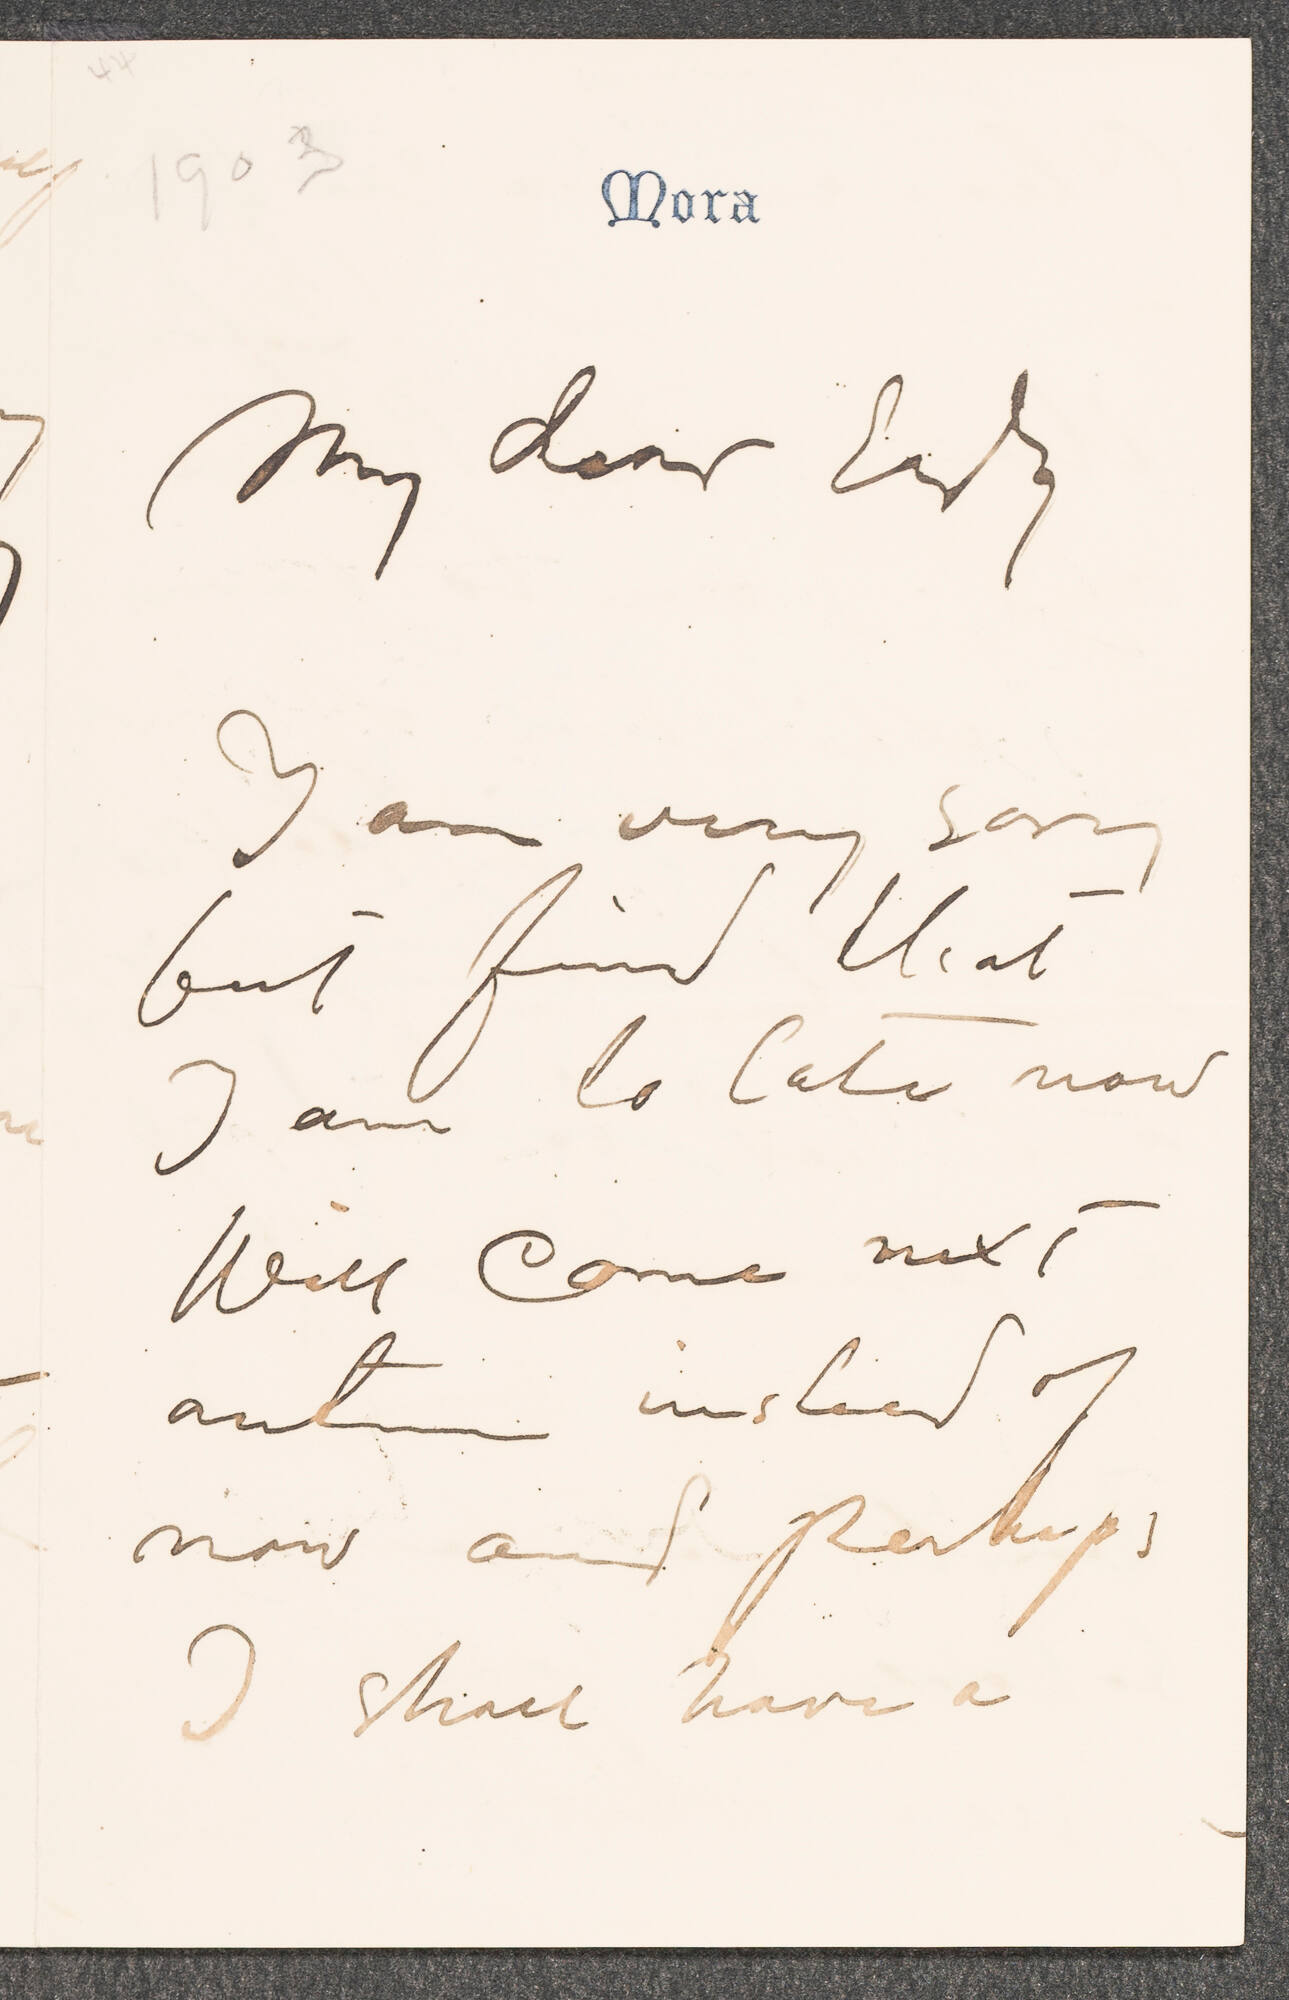 44
1903
Mora
My dear Eddy
I am very sorry
but find that
I am to late now
Will come next
autum instead of
now and perhaps
I shall have a